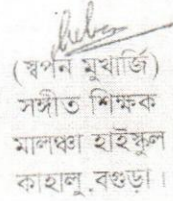 (স্বপন মুখার্জি)
সঙ্গীত শিক্ষক
মালঞ্চা হাইস্কুল
কাহালু, বগুড়া।